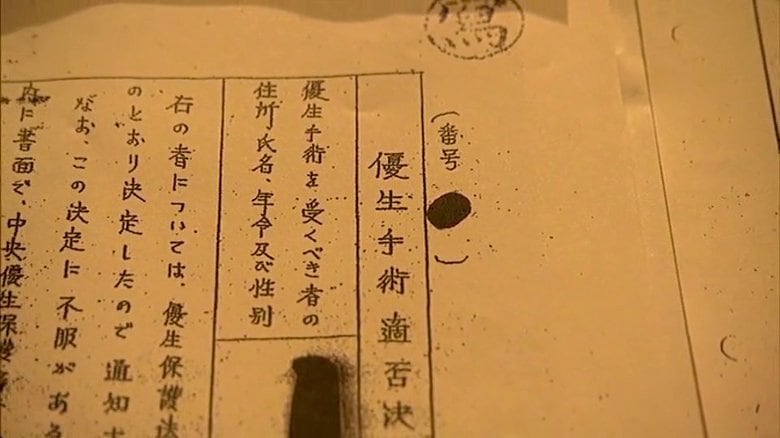 写
（番号　　）
優生手術適否決
優生手術を受くべき者の
住所、氏名、年令及び性別
右の者については、優生保護法
のとおり決定したので通知す
なお、この決定に不服がある
内に書面で、中央優生保護